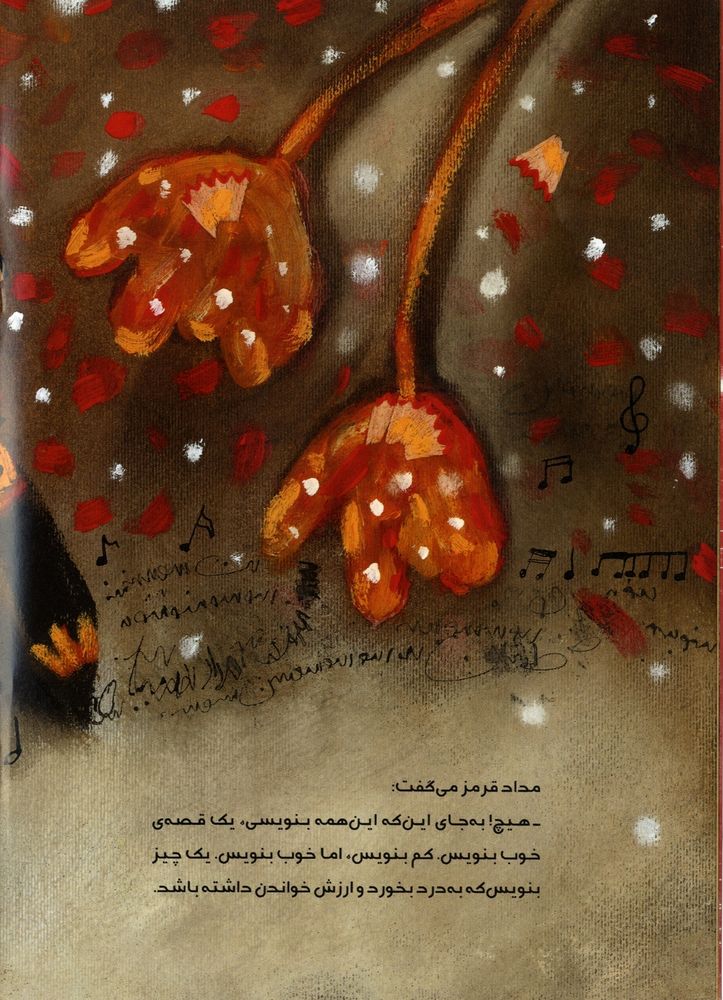 مداد قرمز می‌گفت:
ـ هیچ! به‌جای این‌که این‌همه بنویسی، یک قصه‌ی
خوب بنویس. کم بنویس، اما خوب بنویس. یک چیز
بنویس‌که به‌درد بخورد و ارزش خواندن داشته باشد.